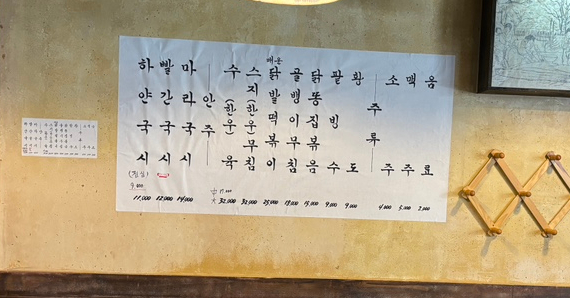 하얀국시
(점심)
9,000
11,000
빨간국시
12,000
마라국시
14,000
안주
수(한우)육
大 32,000
스지(한우)무침
32,000
매운
닭발떡볶이
25,000
골뱅이무침
18,000
닭똥집볶음
15,000
팥빙수
9,000
황도
9,000
주류
소주
4,000
맥주
5,000
음료
2,000